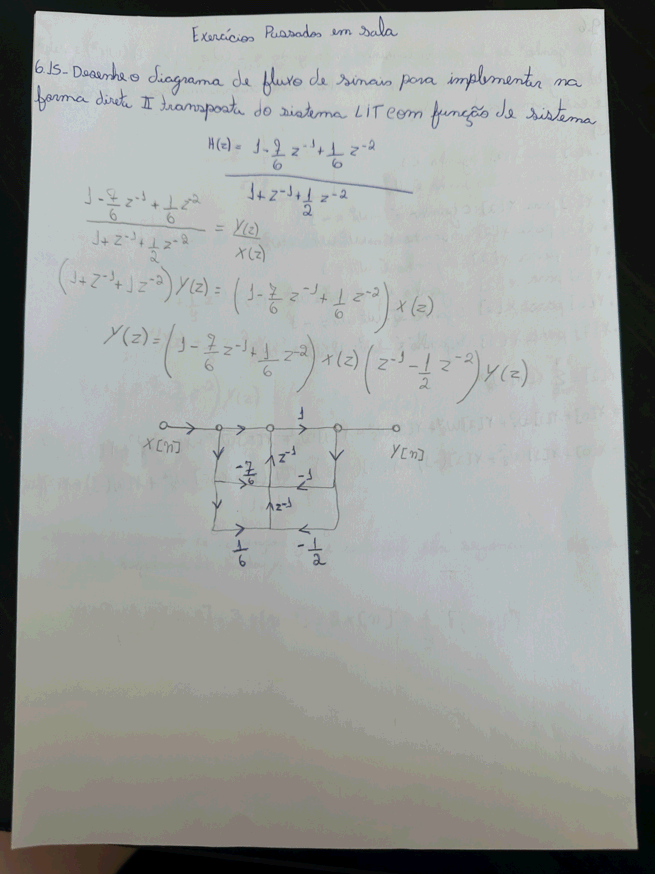 Exercícios Passados em sala
6.15- Desenhe o diagrama de fluxo de sinais para implementar na
forma direta II transposta do sistema LIT com função de sistema
H(z) = 1 - 7/6 z⁻¹ + 1/6 z⁻²
1 + z⁻¹ + 1/2 z⁻²
1 - 7/6 z⁻¹ + 1/6 z⁻² / 1 + z⁻¹ + 1/2 z⁻² = Y(z)/X(z)
(1 + z⁻¹ + 1z⁻²) Y(z) = (1 - 7/6 z⁻¹ + 1/6 z⁻²) X(z)
Y(z) = (1 - 7/6 z⁻¹ + 1/6 z⁻²) X(z) (z⁻¹ - 1/2 z⁻²) Y(z)
1
X[n] Y[n]
z⁻¹
-7/6 -1
z⁻¹
1/6 -1/2